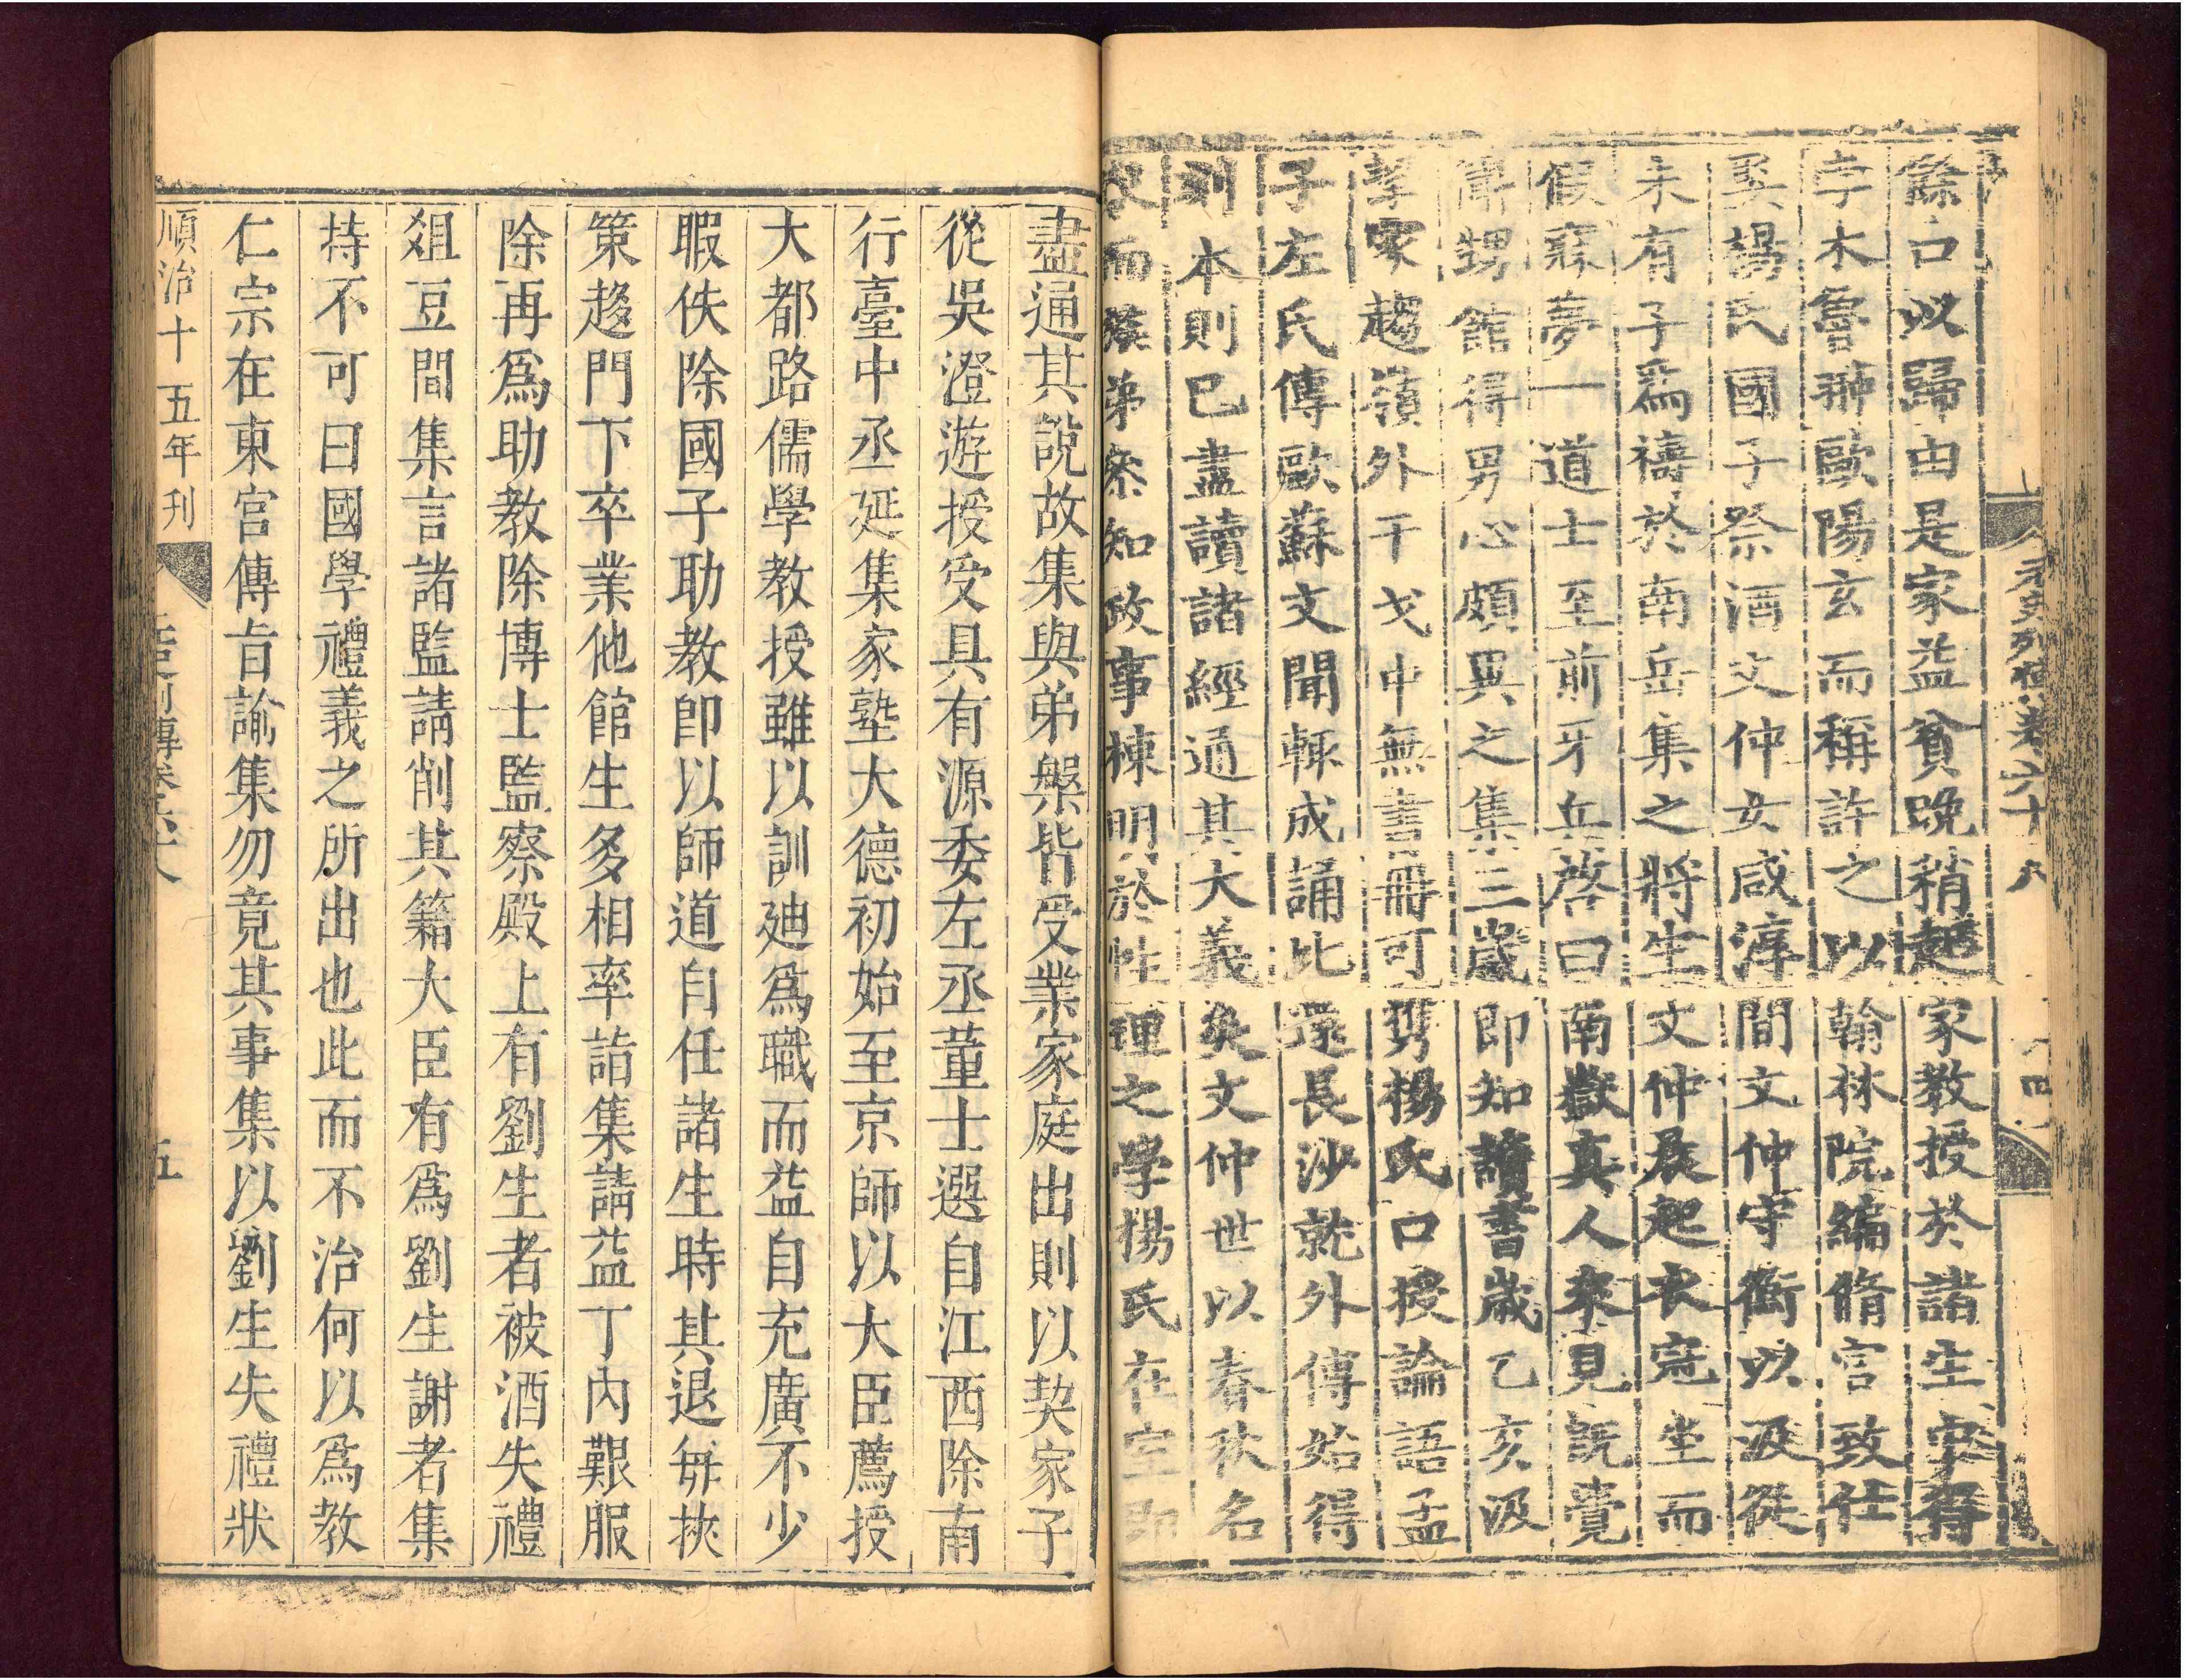 元史列傳卷六十八
四
餘口以歸由是家益貧晚稍起家教授於諸生中得
孛朮魯翀歐陽玄而稱許之以翰林院編脩官致仕
娶楊氏國子祭酒文仲女咸淳間文仲守衡以汲從
未有子爲禱於南岳集之將生文仲晨起衣冠坐而
假寐夢一道士至前牙兵啓曰南嶽真人來見既覺
聞甥館得男心頗異之集三歲即知讀書歲乙亥汲
挈家趨嶺外干戈中無書冊可攜楊氏口授論語孟
子左氏傳歐蘇文聞輒成誦比還長沙就外傅始得
刻本則已盡讀諸經通其大義矣文仲世以春秋名
家而族弟參知政事棟明於性理之學楊氏在室即
盡通其說故集與弟槃皆受業家庭出則以契家子
從吳澄遊授受具有源委左丞董士選自江西除南
行臺中丞延集家塾大德初始至京師以大臣薦授
大都路儒學教授雖以訓廸爲職而益自充廣不少
暇佚除國子助教即以師道自任諸生時其退每挾
策趍門下卒業他館生多相率詣集請益丁內艱服
除再爲助教除博士監察殿上有劉生者被酒失禮
爼豆間集言諸監請削其籍大臣有爲劉生謝者集
持不可曰國學禮義之所出也此而不治何以爲教
仁宗在東宮傳旨諭集勿竟其事集以劉生失禮狀
順治十五年刊
列傳卷六十八
五